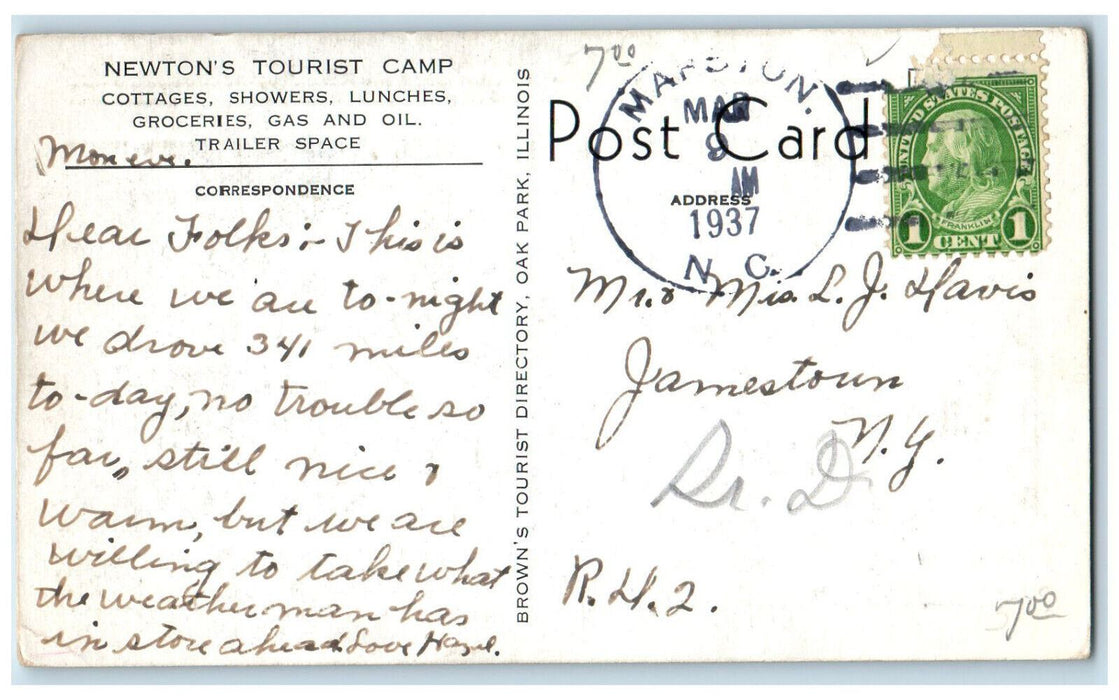 NEWTON'S TOURIST CAMP
COTTAGES, SHOWERS, LUNCHES,
GROCERIES, GAS AND OIL.
TRAILER SPACE
Mon eve.
CORRESPONDENCE
Dear Folks:- This is
where we are to-night
we drove 341 miles
to-day, no trouble so
far, still nice &
warm, but we are
willing to take what
the weather man has
in store ahead. Love Hazel.
BROWN'S TOURIST DIRECTORY, OAK PARK, ILLINOIS
7⁰⁰
Post Card
ADDRESS
MARSTON.
MAR
9
AM
1937
N. C.
UNITED STATES POSTAGE
FRANKLIN
1 CENT 1
Mr. & Mrs. L. J. Davis
Jamestown
N. Y.
Dr. D
R.D. 2.
7⁰⁰